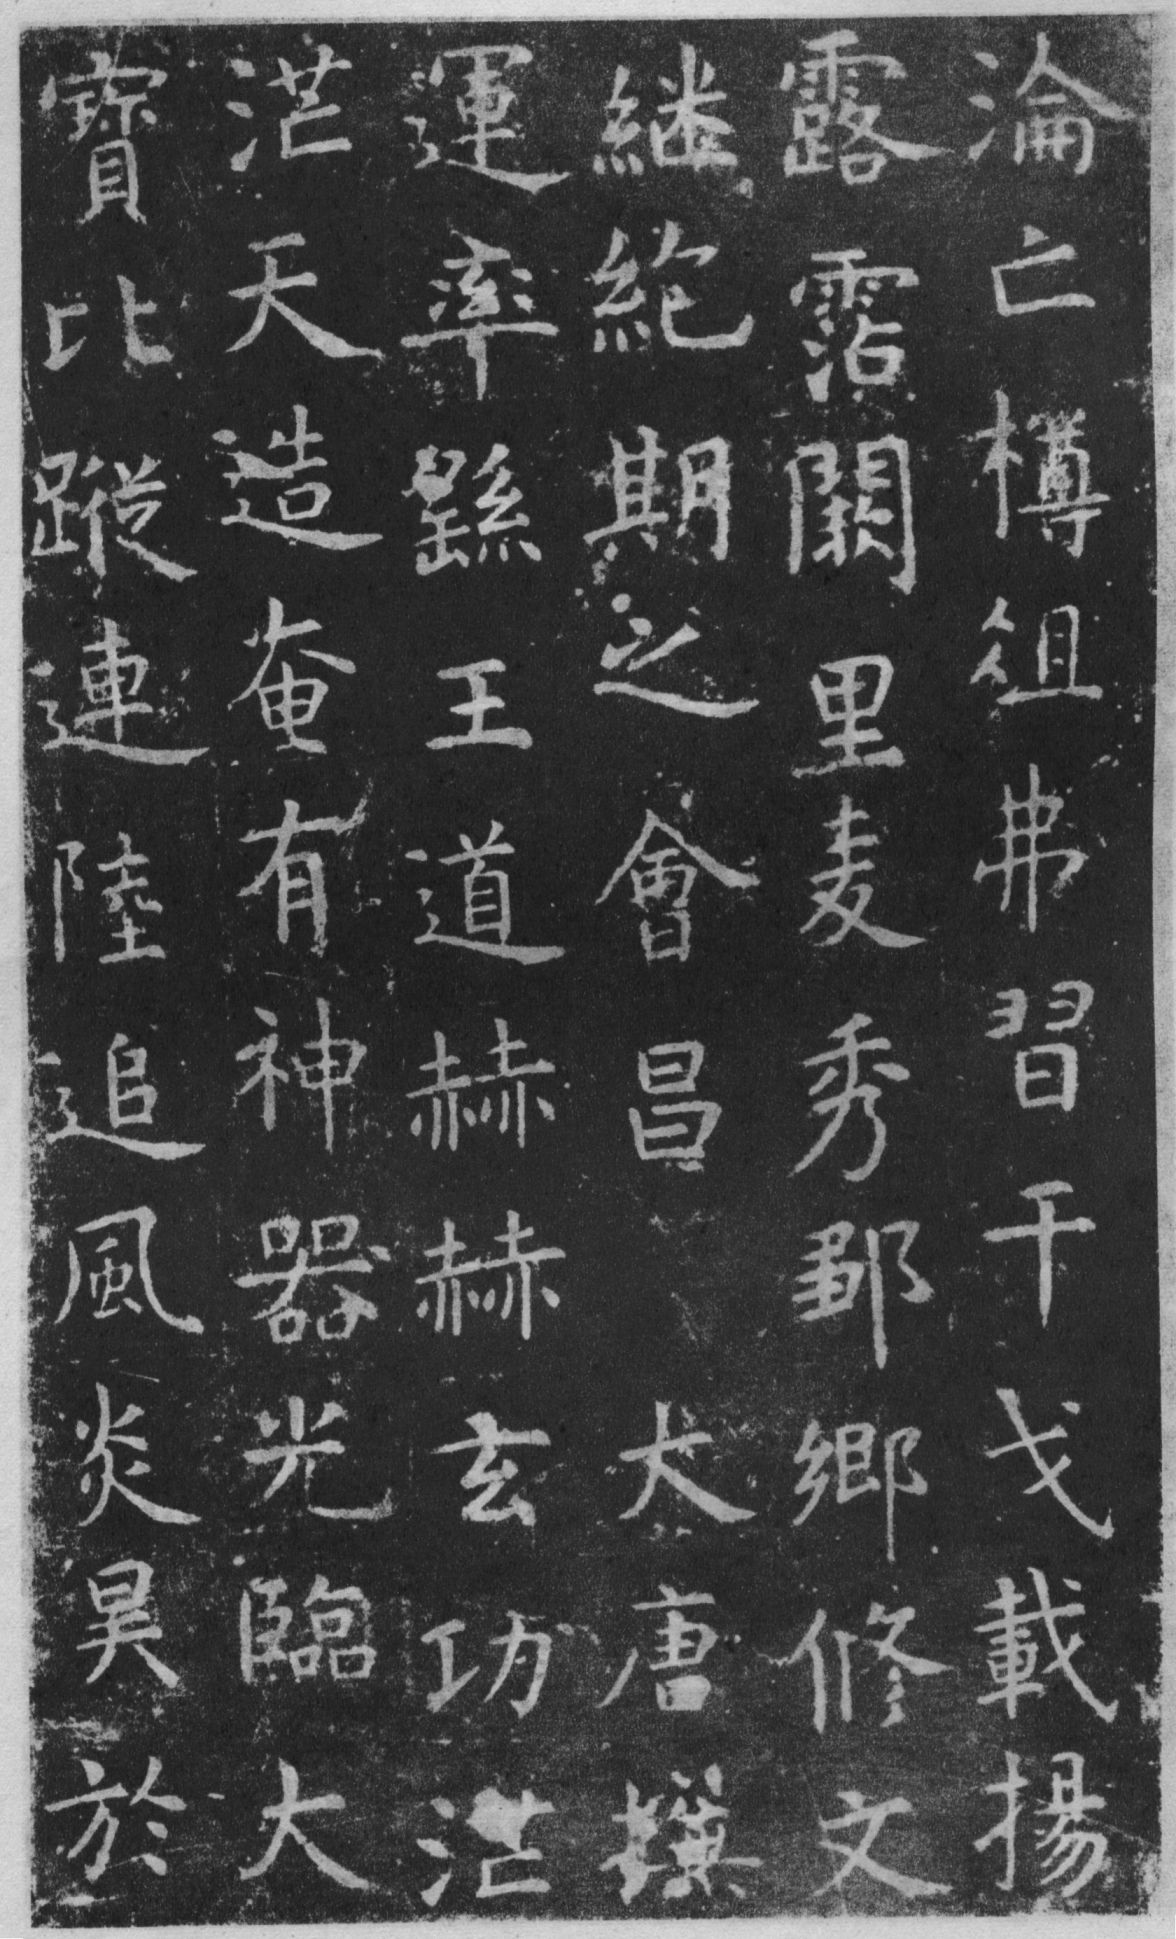 淪亡樽俎弗習干戈載揚
露霑闕里麦秀鄒鄉修文
継絶期之會昌 大唐撰
運率繇王道赫赫玄功茫
茫天造奄有神器光臨大
寶比蹤連陸追風炎昊於